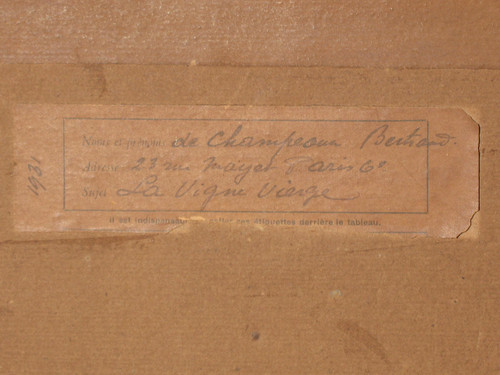 1931
Noms et prénoms de Champeaux Bertrand.
Adresse 23 rue Mayet Paris 6e
Sujet La Vigne Vierge
Il est indispensable de coller ces étiquettes derrière le tableau.